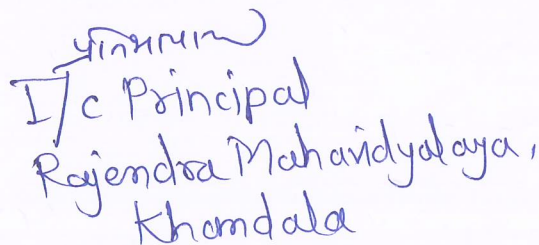 I/c Principal
Rajendra Mahavidyalaya,
Khandala